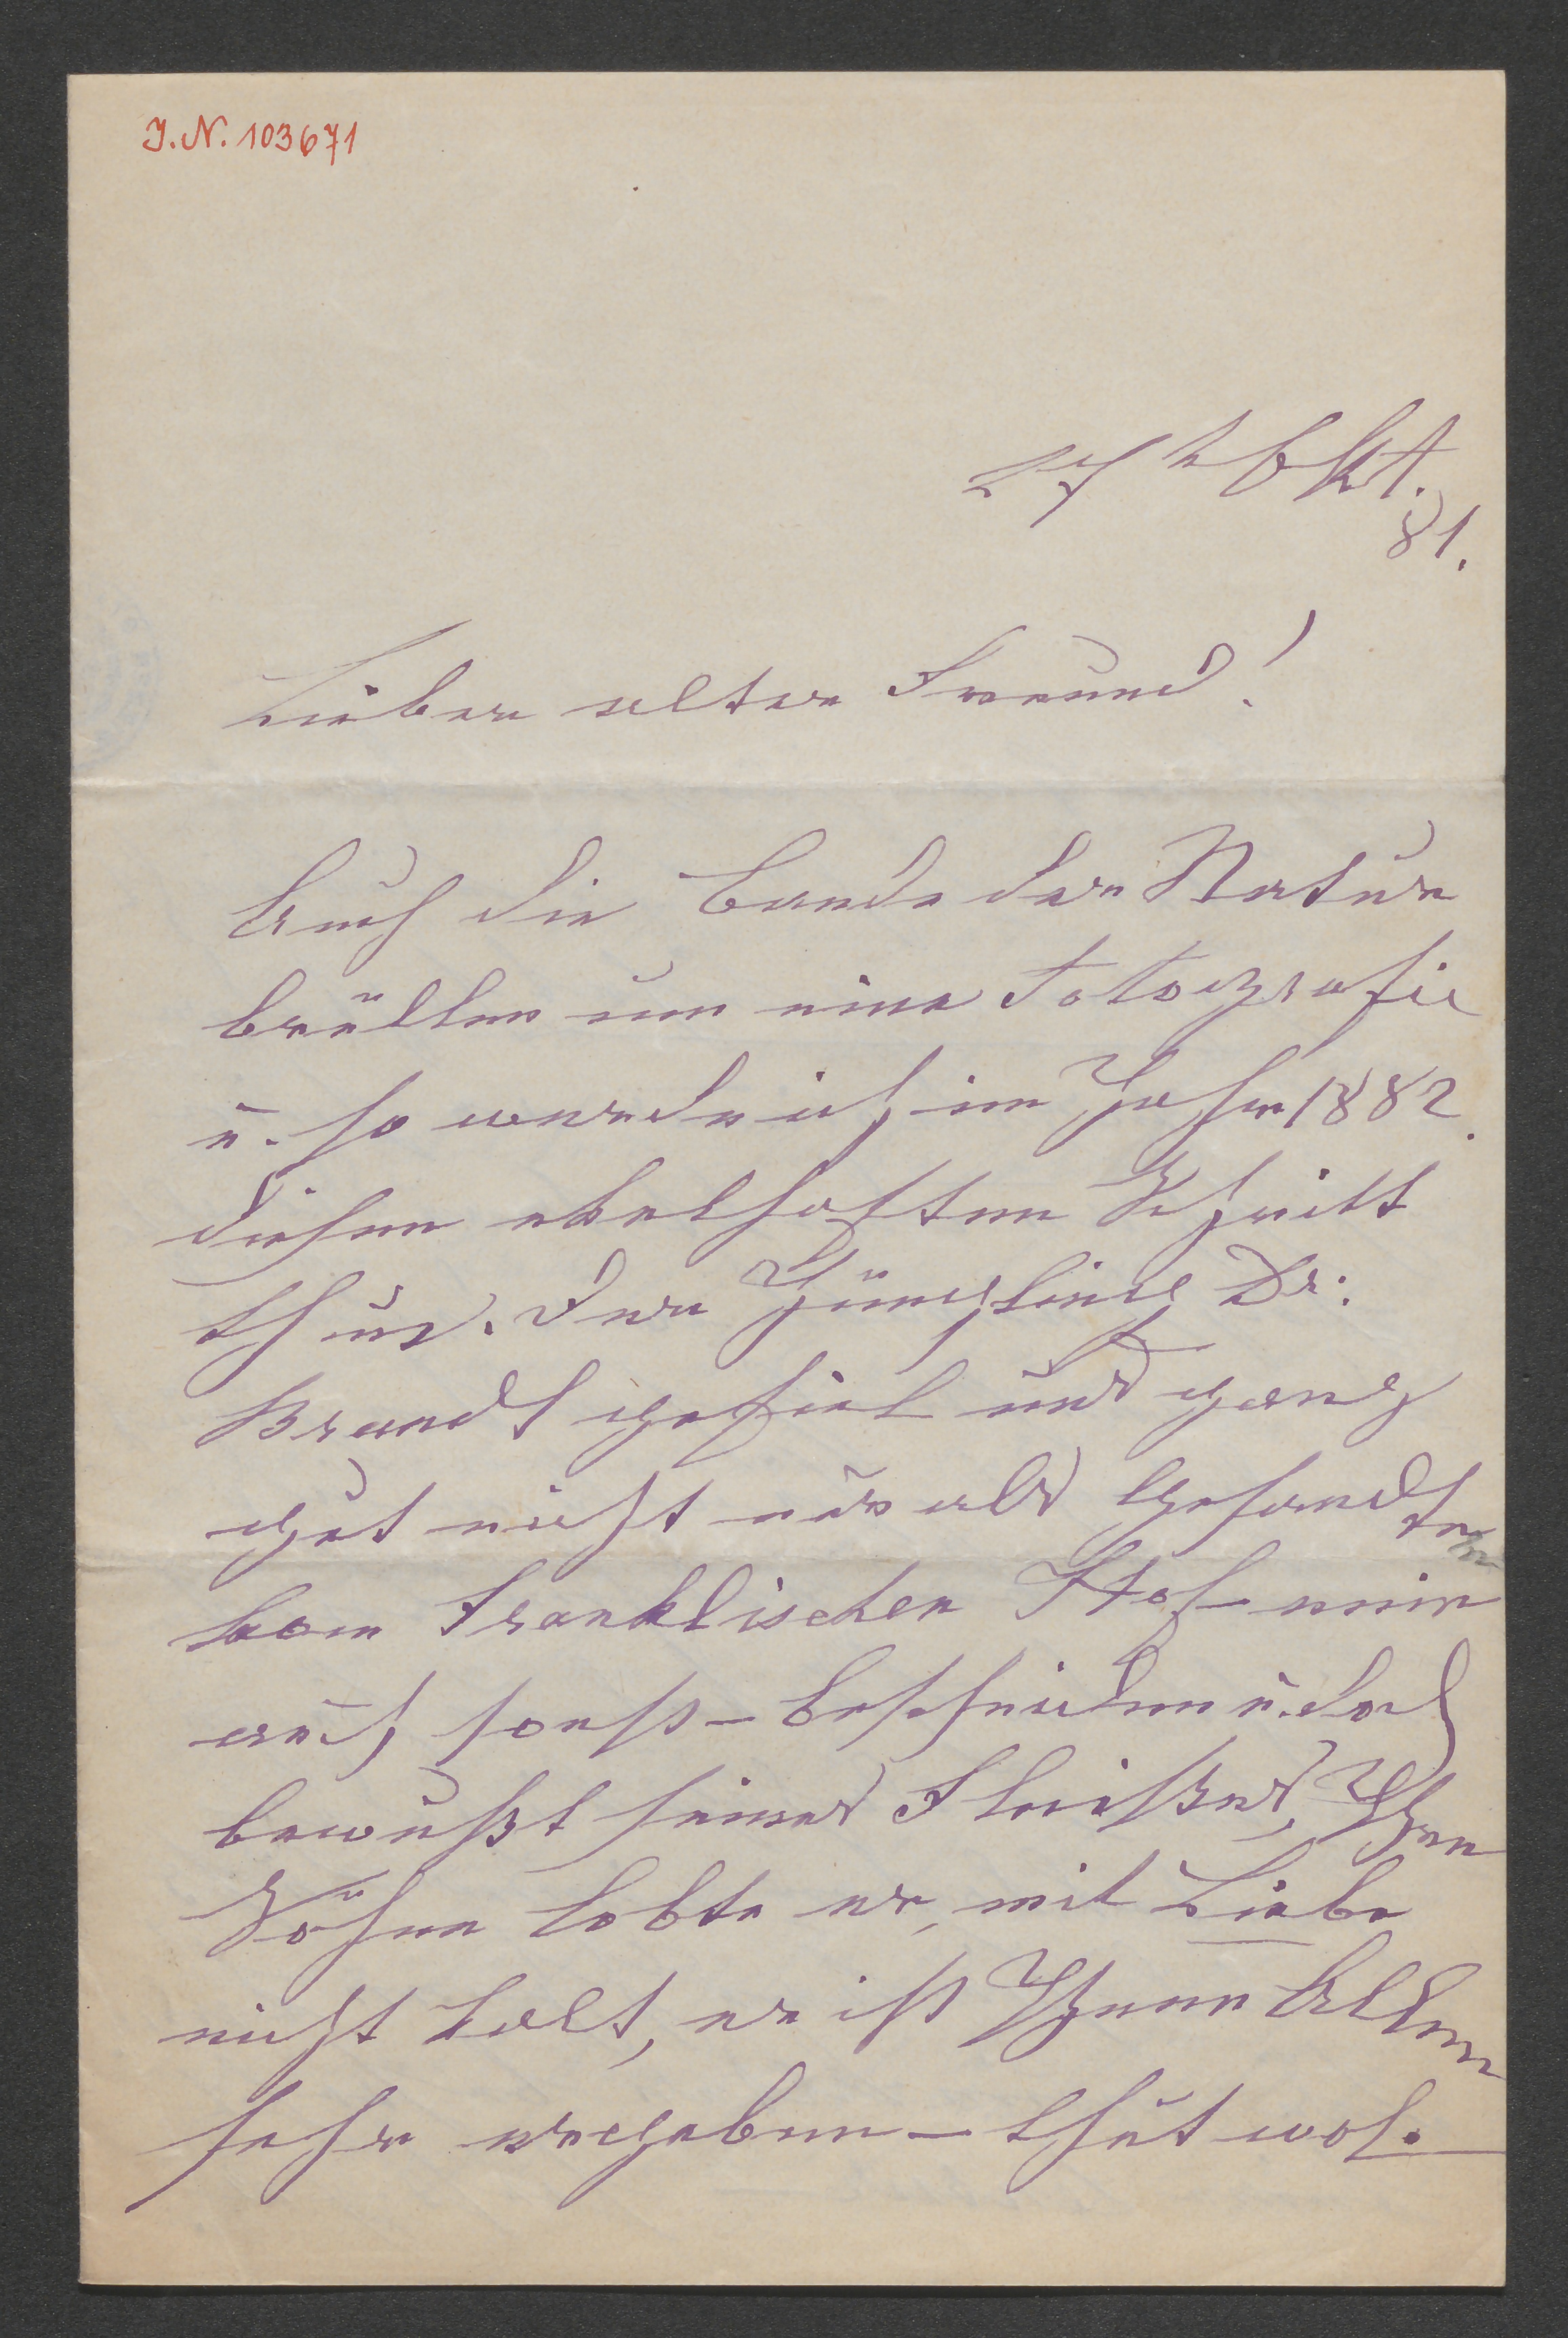 I.N. 103671
27 Okt.
81.
Lieber alter Freund!
Auch die Bande der Natur
brüllen um eine Fotografie
u. so werde ich im Jahr 1882.
diesen ekelhaften Schritt
thun. Der Jüngling Dr:
Brandt gefiel uns ganz
gut nicht nur als Gesandter
vom Frankl'ischen Hof – mir
auch sonst – bescheiden u. doch
bewußt seines Fleißes, Ihre
Söhne lobte er, mit Liebe
nicht kalt, er ist Ihnen Allen
sehr ergeben – thut wol.